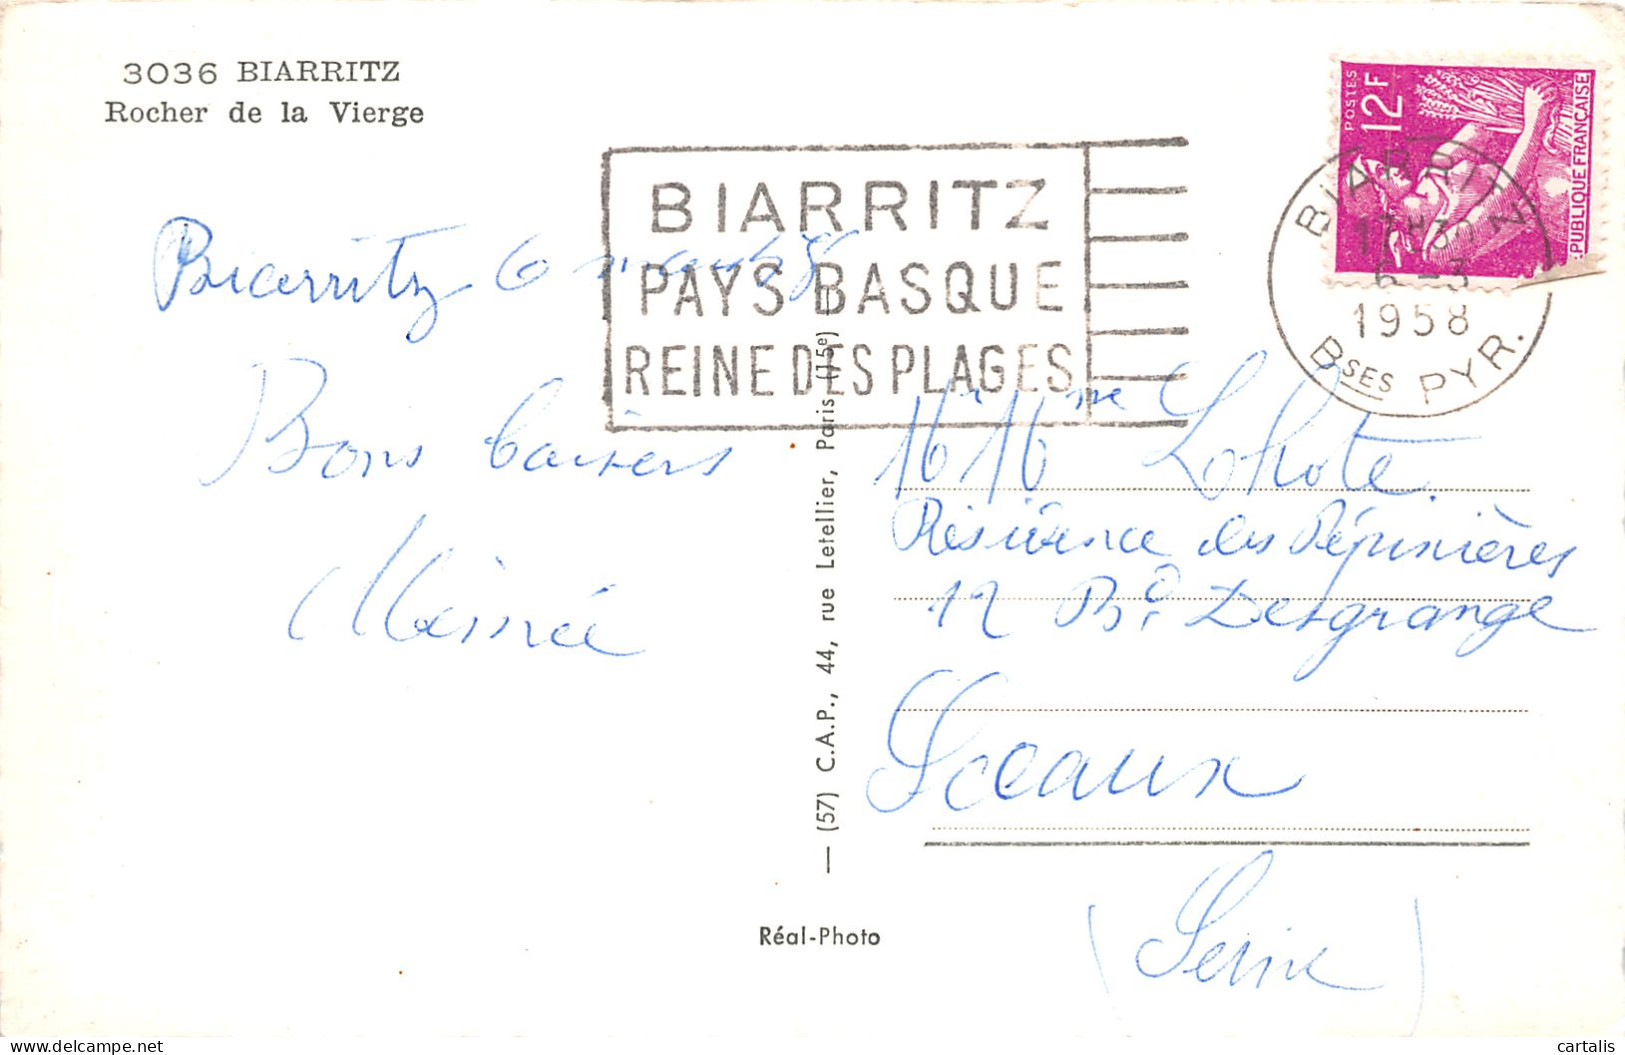 3036 BIARRITZ
Rocher de la Vierge
POSTES 12F
RÉPUBLIQUE FRANÇAISE
BIARRITZ
PAYS BASQUE
REINE DES PLAGES
BIARRITZ
17H30
6 - 3
1958
BSES PYR.
Biarritz 6 mars 58
Bons baisers
— (57) C.A.P., 44, rue Letellier, Paris (15e) —
Résidence des Pépinières
12 Bd Desgrange
Sceaux
(Seine)
Réal-Photo
delcampe.net
cartalis